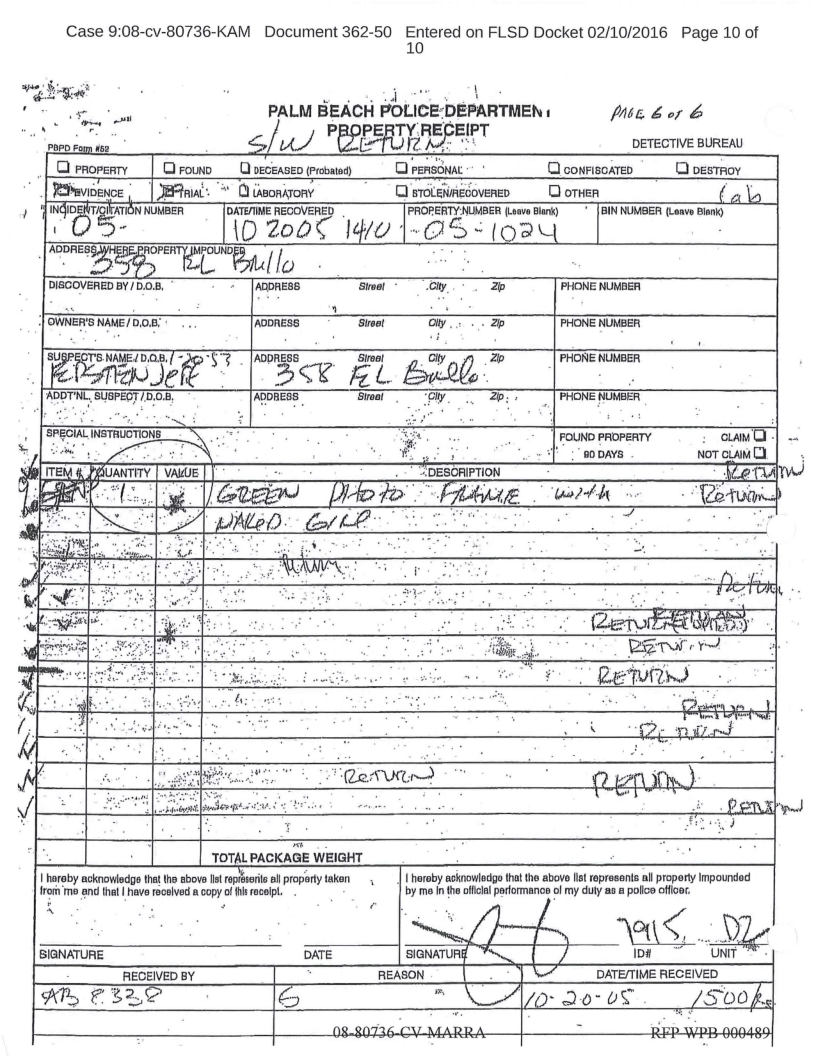 Case 9:08-cv-80736-KAM Document 362-50 Entered on FLSD Docket 02/10/2016 Page 10 of
10
PALM BEACH POLICE DEPARTMENT
PAGE 6 of 6
PROPERTY RECEIPT
S/W RETURN
PBPD Form #52
DETECTIVE BUREAU
PROPERTY FOUND DECEASED (Probated) PERSONAL CONFISCATED DESTROY
EVIDENCE TRIAL LABORATORY STOLEN/RECOVERED OTHER
lab
INCIDENT/CITATION NUMBER DATE/TIME RECOVERED PROPERTY NUMBER (Leave Blank) BIN NUMBER (Leave Blank)
05- 10 2005 1410 -05-1024
ADDRESS WHERE PROPERTY IMPOUNDED
358 EL Brillo
DISCOVERED BY / D.O.B. ADDRESS Street City Zip PHONE NUMBER
OWNER'S NAME / D.O.B. ADDRESS Street City Zip PHONE NUMBER
SUSPECT'S NAME / D.O.B. 1-20-53 ADDRESS Street City Zip PHONE NUMBER
358 EL Brillo
ADDT'NL. SUSPECT / D.O.B. ADDRESS Street City Zip PHONE NUMBER
SPECIAL INSTRUCTIONS FOUND PROPERTY CLAIM
90 DAYS NOT CLAIM
ITEM # QUANTITY VALUE DESCRIPTION Return
1 GREEN PHOTO FRAME with Return
NAKED GIRL
Return
RETURN
RETURN
RETURN
RETURN
RETURN
RETURN RETURN
RETURN
TOTAL PACKAGE WEIGHT
I hereby acknowledge that the above list represents all property taken
from me and that I have received a copy of this receipt.
I hereby acknowledge that the above list represents all property impounded
by me in the official performance of my duty as a police officer.
7915 D2
SIGNATURE DATE SIGNATURE ID# UNIT
RECEIVED BY REASON DATE/TIME RECEIVED
AB 8338 6 10-20-05 1500
08-80736-CV-MARRA RFP WPB 000489